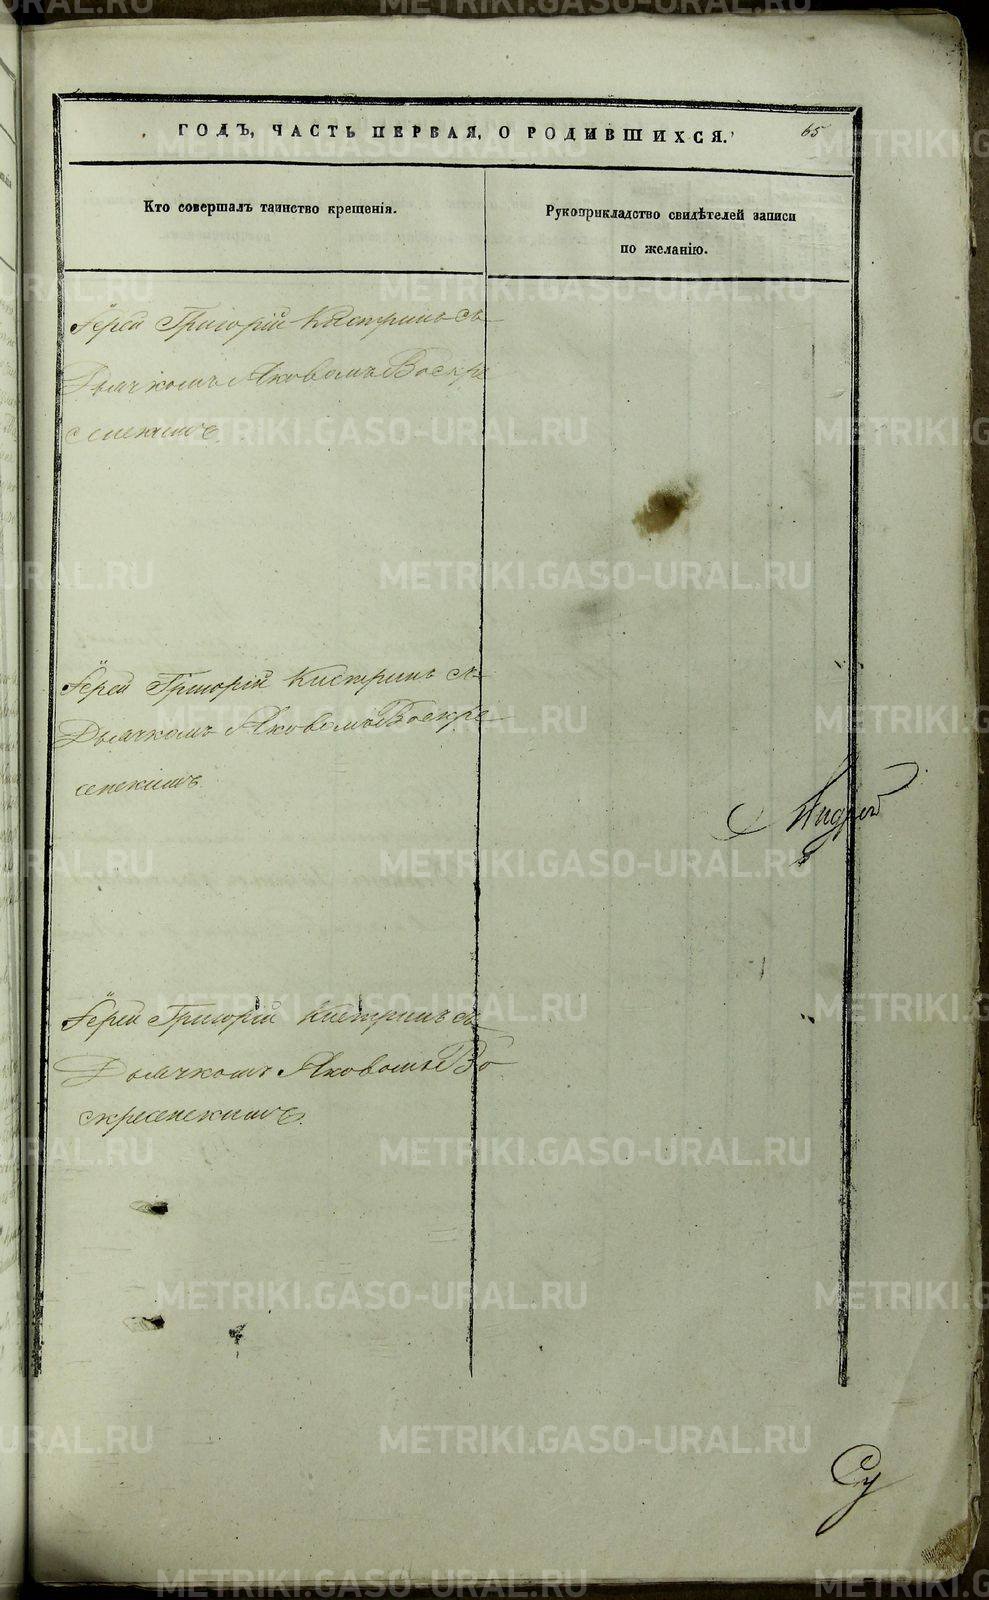 ГОДЪ, ЧАСТЬ ПЕРВАЯ, О РОДИВШИХСЯ.
65
Кто совершалъ таинство крещенія.
Рукоприкладство свидѣтелей записи
по желанію.
Іерей Григорій Кистринъ съ
Дьячкомъ Яковомъ Воскре
сенскимъ
Іерей Григорій Кистринъ съ
Дьячкомъ Яковомъ Воскре
сенскимъ
Андрей
Іерей Григорій Кистринъ съ
Дьячкомъ Яковомъ Во
скресенскимъ.
Су
METRIKI.GASO-URAL.RU